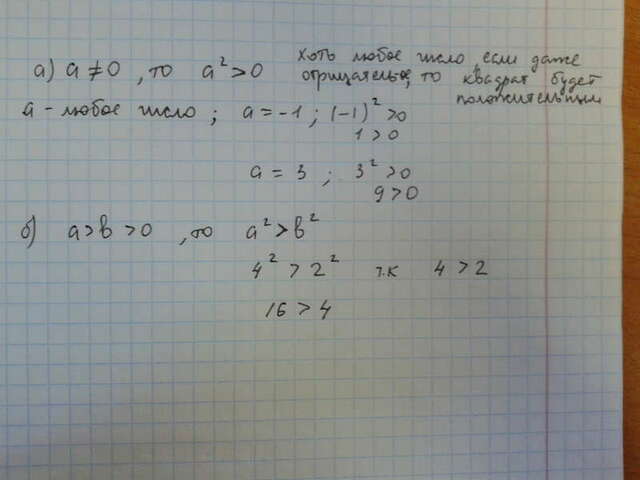 а) a ≠ 0 , то a² > 0
Хоть любое число, если даже
отрицательное, то квадрат будет
положительным
а - любое число ; a = -1 ; (-1)² > 0
1 > 0
a = 3 ; 3² > 0
9 > 0
б) a > b > 0 , то a² > b²
4² > 2² т.к 4 > 2
16 > 4